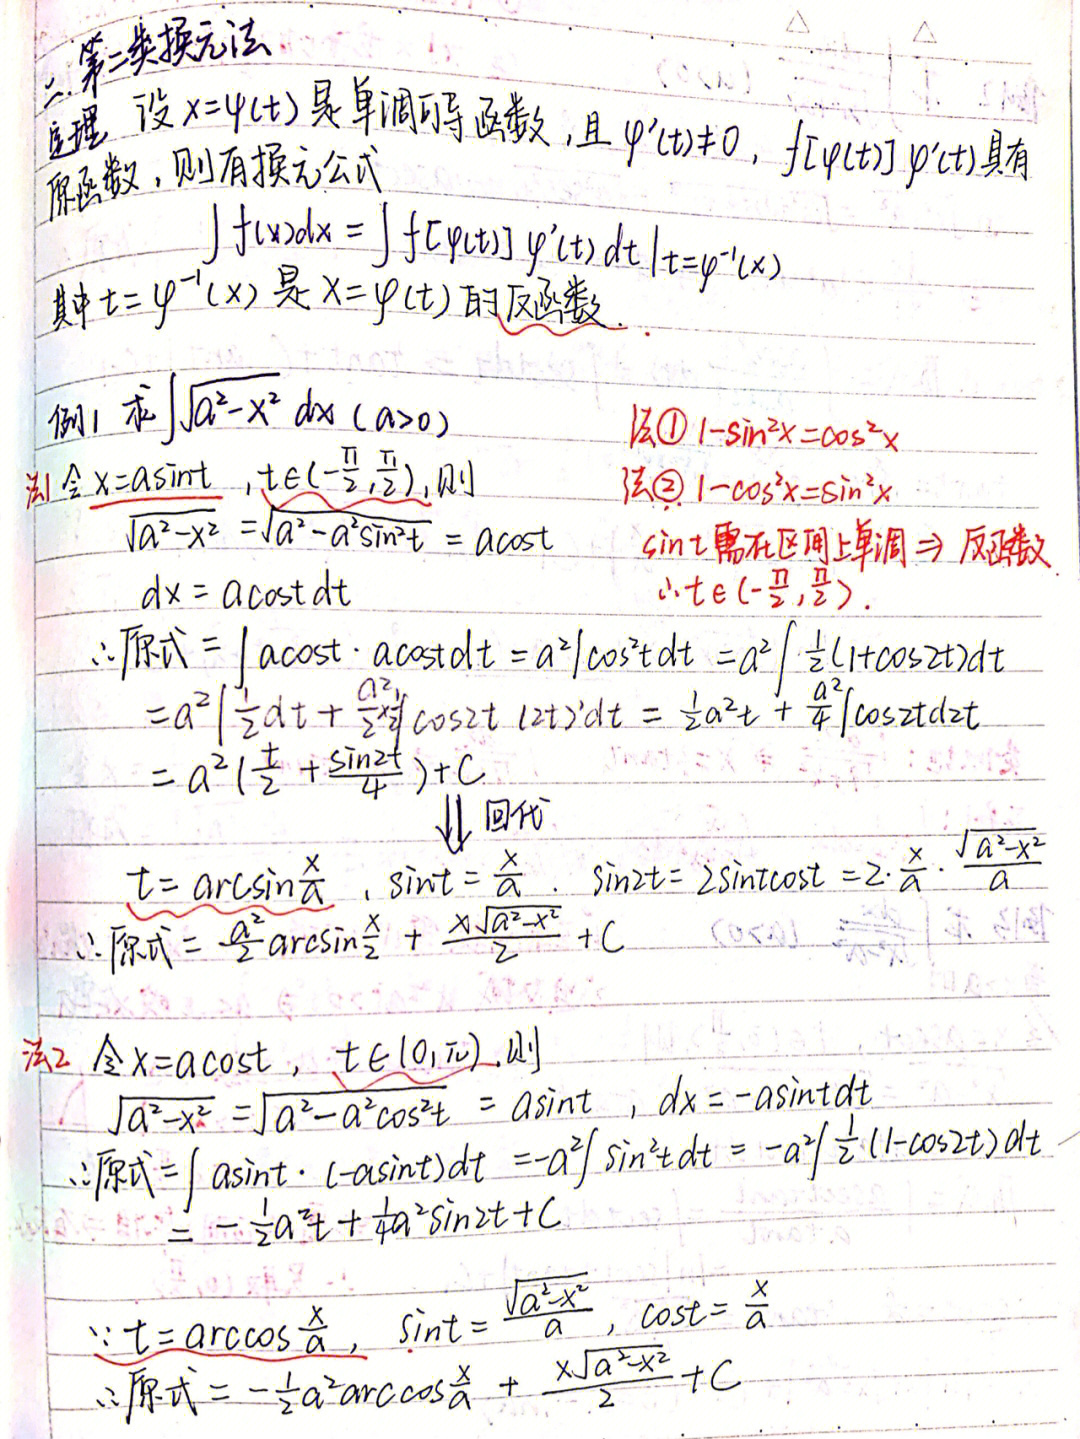 二.第二类换元法
定理 设x=φ(t)是单调可导函数,且φ'(t)≠0, f[φ(t)]φ'(t)具有
原函数,则有换元公式
∫f(x)dx = ∫f[φ(t)]φ'(t)dt|t=φ⁻¹(x)
其中t=φ⁻¹(x)是x=φ(t)的反函数.
例1 求∫√(a²-x²) dx (a>0)
法① 1-sin²x=cos²x
法1 令x=asint, t∈(-π/2,π/2),则
法② 1-cos²x=sin²x
√(a²-x²) =√(a²-a²sin²t) = acost
sint需在区间上单调⇒反函数
dx = acostdt
∴t∈(-π/2,π/2).
∴原式 = ∫acost·acostdt = a²∫cos²tdt = a²∫1/2(1+cos2t)dt
= a²∫1/2dt + a²/2×1/2∫cos2t (2t)'dt = 1/2a²t + a²/4∫cos2td2t
= a²(t/2 + sin2t/4)+C
⇓ 回代
t= arcsin x/a , sint= x/a . sin2t= 2sintcost =2·x/a·√(a²-x²)/a
∴原式= a²/2 arcsin x/2 + x√(a²-x²)/2 +C
法2 令x=acost, t∈(0,π).则
√(a²-x²) =√(a²-a²cos²t) = asint , dx=-asintdt
∴原式=∫asint·(-asint)dt =-a²∫sin²tdt = -a²∫1/2(1-cos2t)dt
= -1/2a²t+1/4a²sin2t+C
∵t=arccos x/a, sint= √(a²-x²)/a, cost= x/a
∴原式 = -1/2a²arccos x/a + x√(a²-x²)/2 +C